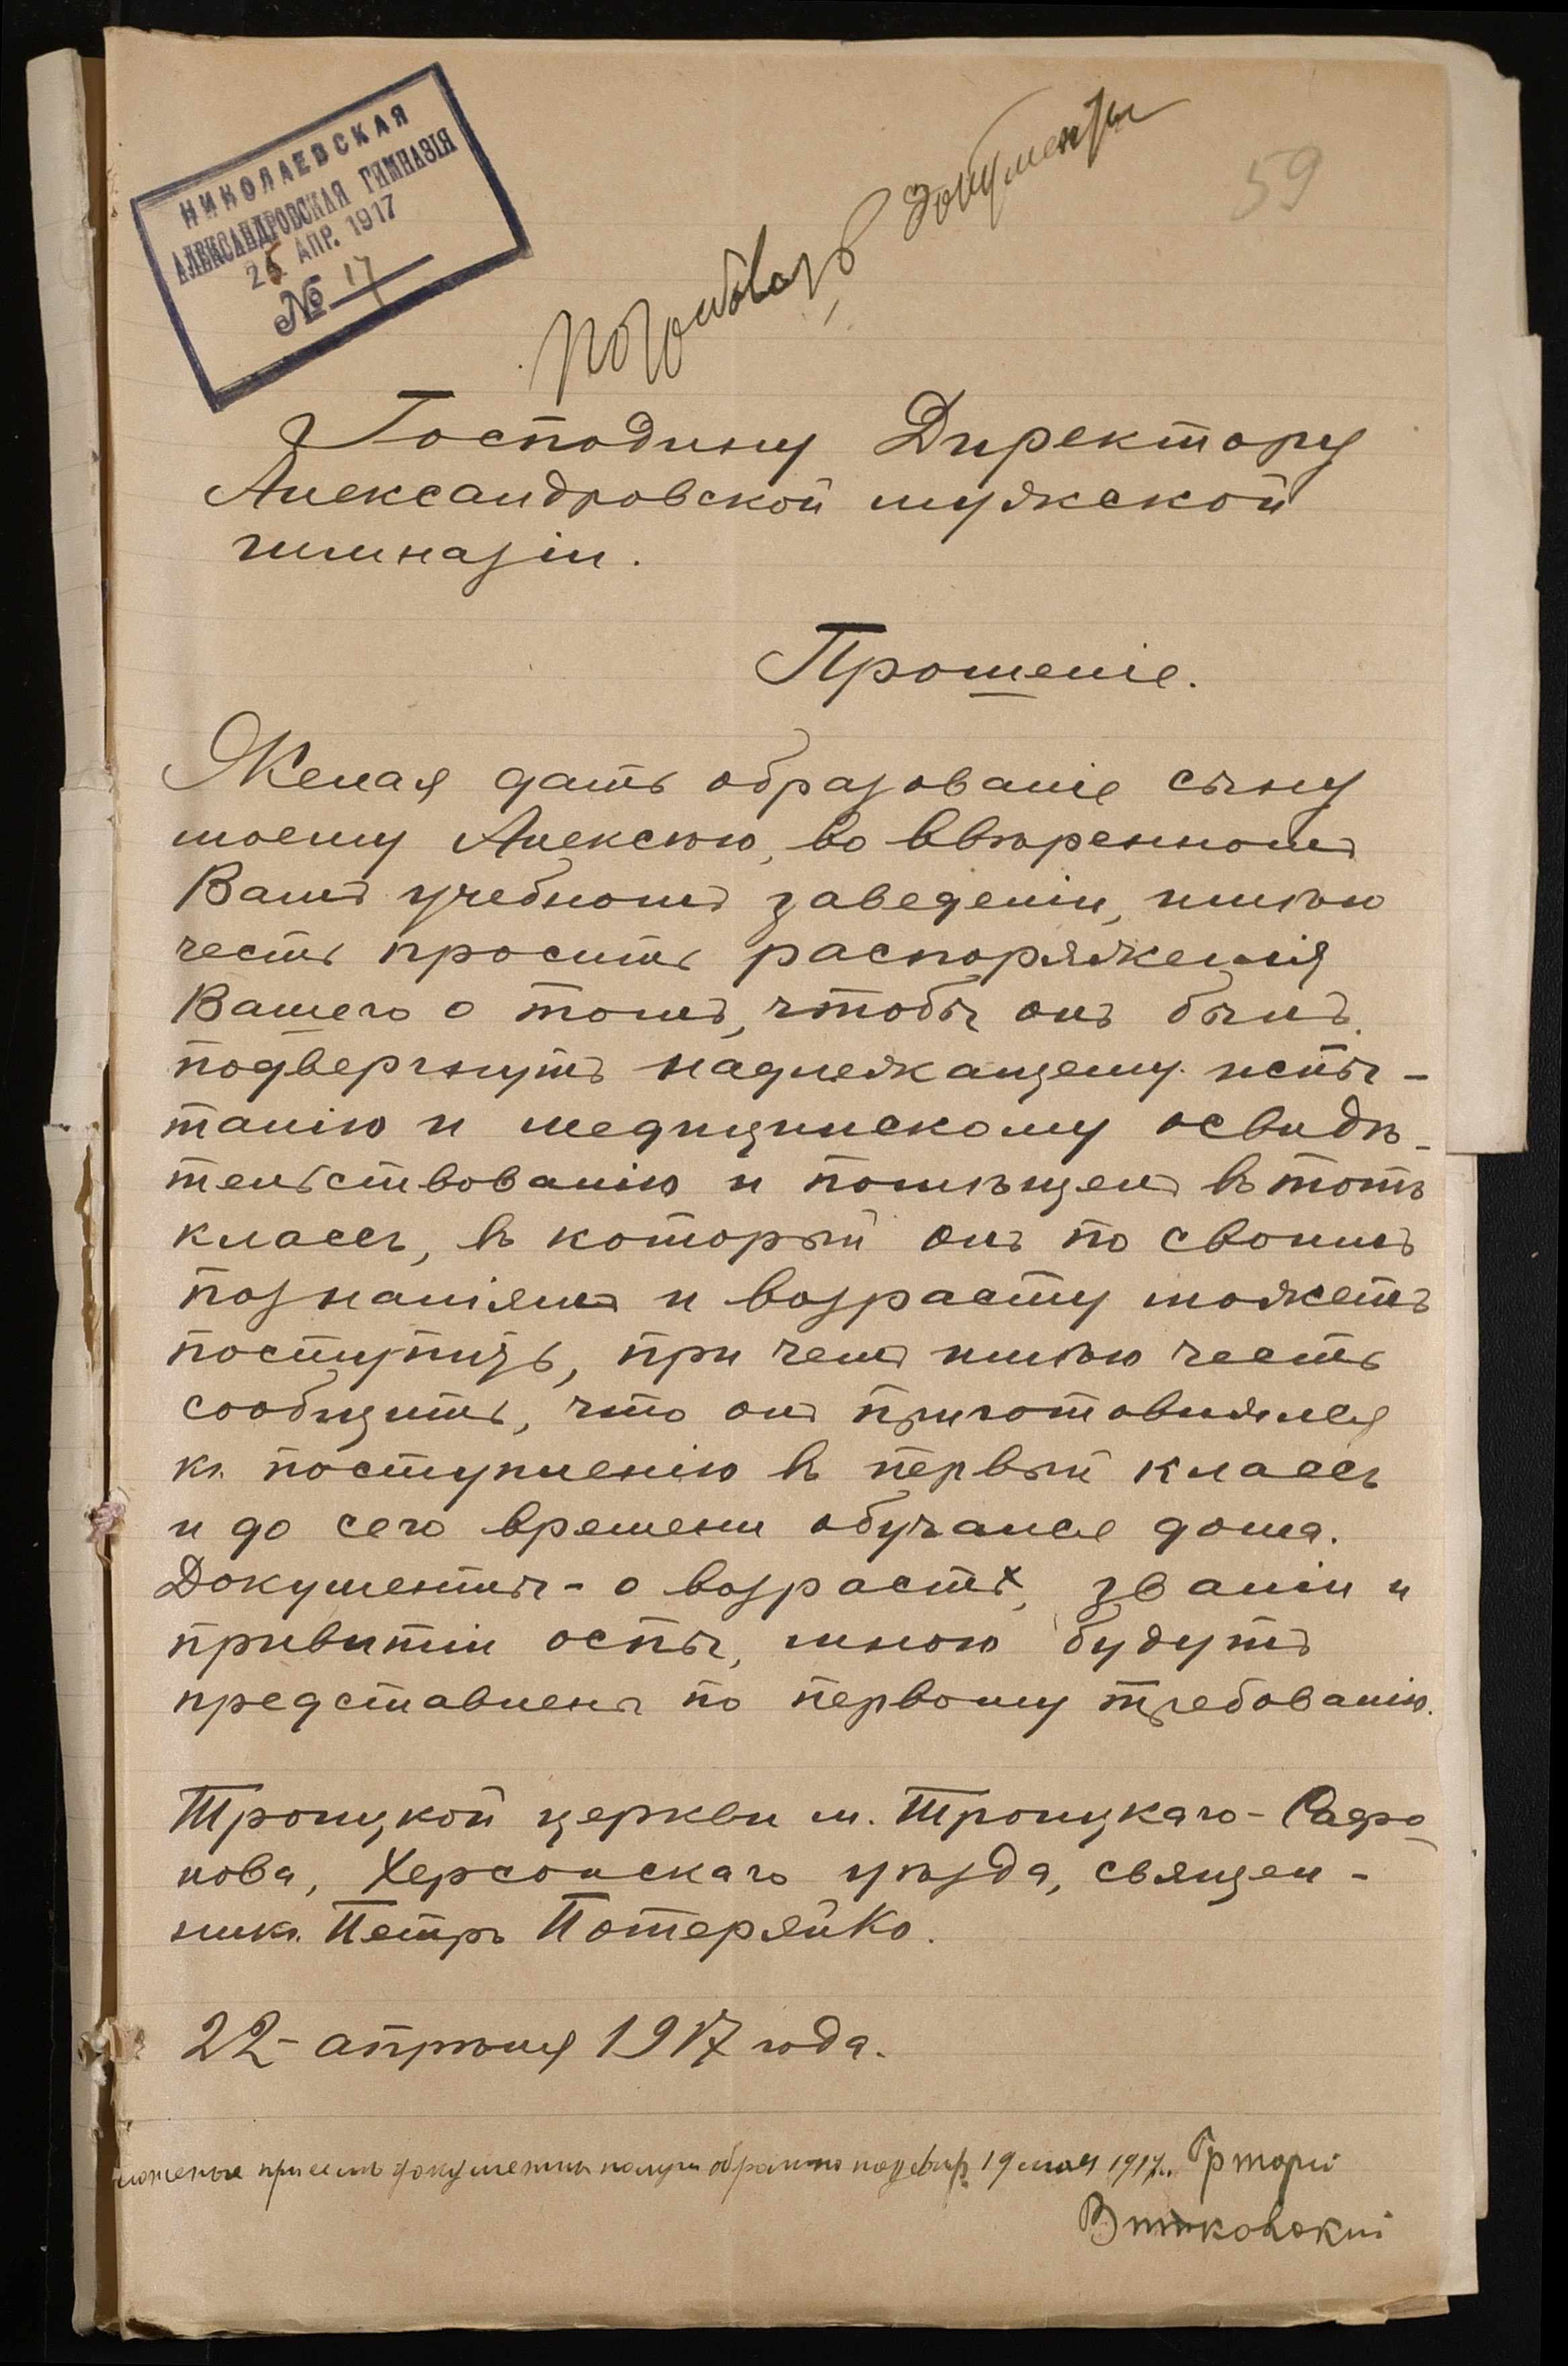 НИКОЛАЕВСКАЯ
АЛЕКСАНДРОВСКАЯ ГИМНАЗІЯ
25 АПР. 1917
№ 17
59
документы
Господину Директору
Александровской мужской
гимназіи.
Прошеніе.
Желая дать образованіе сыну
моему Алексѣю, во ввѣренномъ
Вамъ учебномъ заведеніи, имѣю
честь просить распоряженія
Вашего о томъ, чтобы онъ былъ
подвергнутъ надлежащему испы-
танію и медицинскому освидѣ-
тельствованію и помѣщенъ въ тотъ
классъ, въ который онъ по своимъ
познаніямъ и возрасту можетъ
поступить, при чемъ имѣю честь
сообщить, что онъ приготовлялся
къ поступленію въ первый классъ
и до сего времени обучался дома.
Документы - о возрастѣ, званіи и
привитіи оспы, мною будутъ
представлены по первому требованію.
Троицкой церкви м. Троицкаго-Сафо-
нова, Херсонскаго уѣзда, священ-
никъ Петръ Потеряйко.
22 - апрѣля 1917 года.
при семъ документы обратно 19 мая 1917г. Григорій
Витковскій